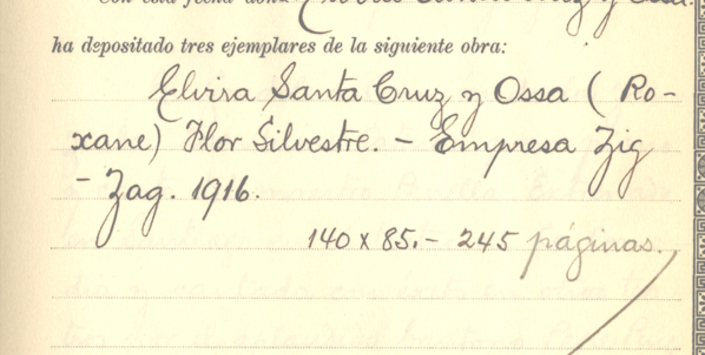 Con esta fecha don
y Ossa.
ha depositado tres ejemplares de la siguiente obra:
Elvira Santa Cruz y Ossa (Ro-
xane) Flor Silvestre. - Empresa Zig
- Zag. 1916.
140 x 85.- 245 páginas.